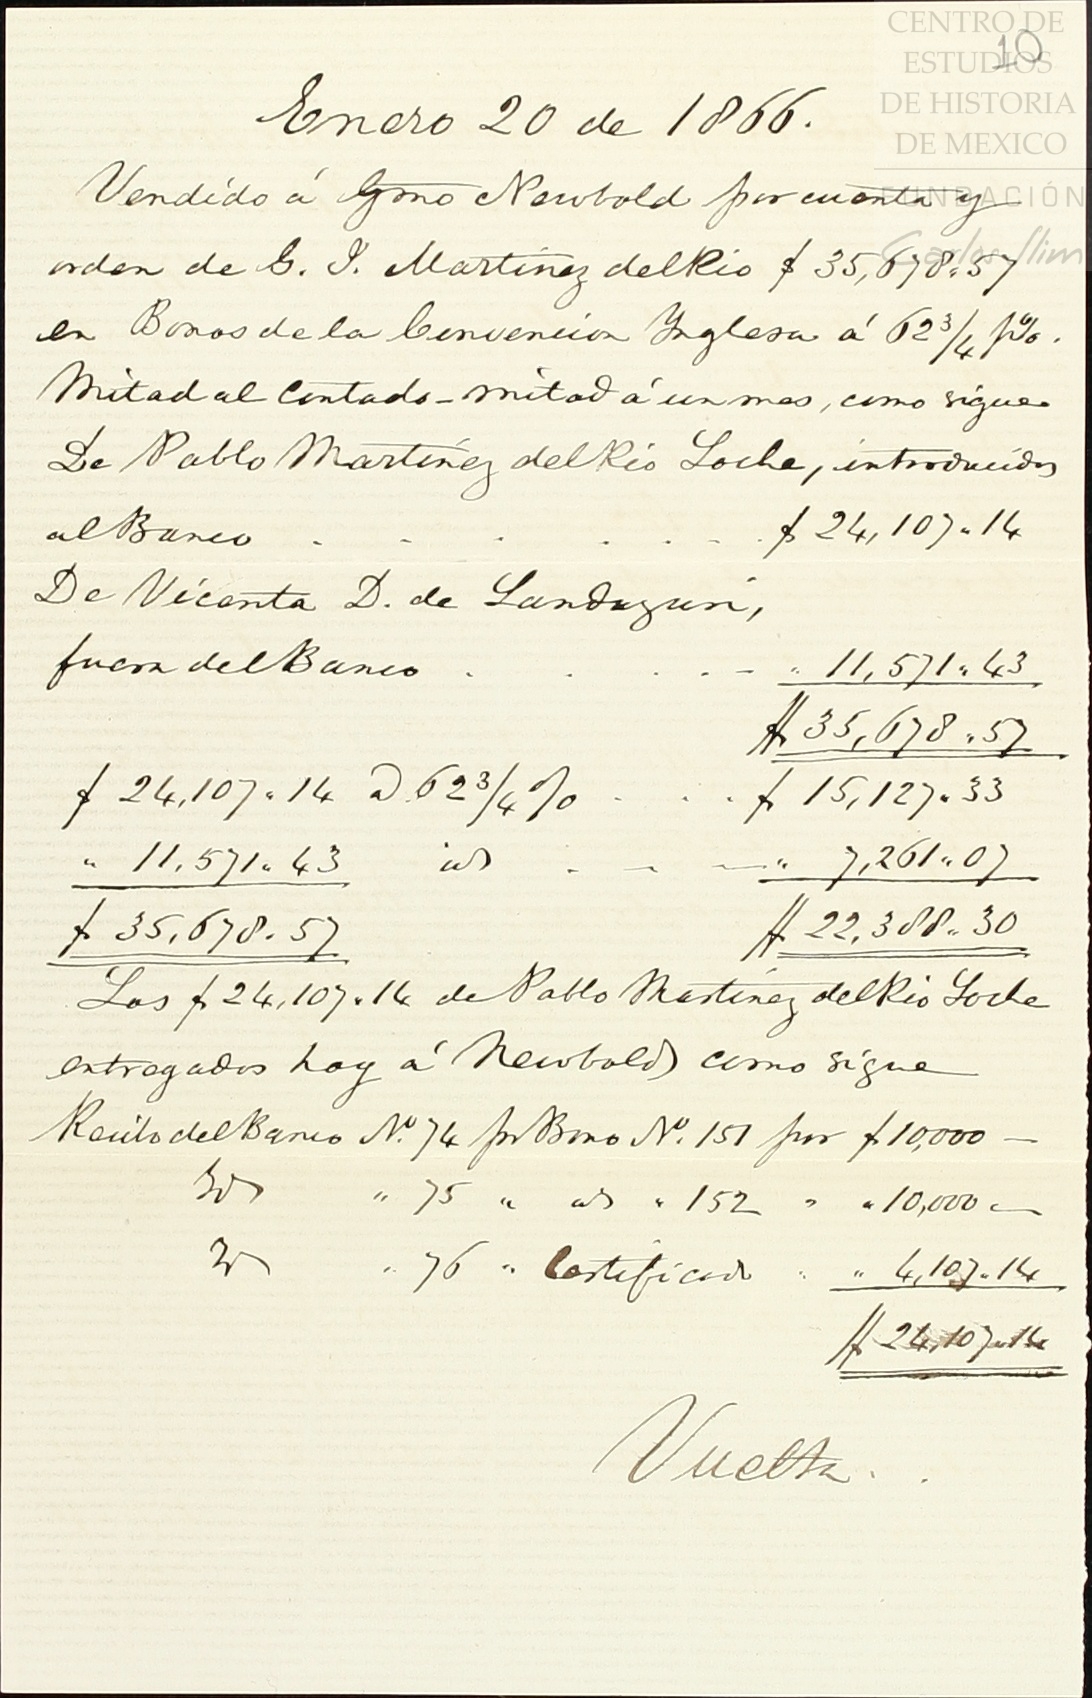 CENTRO DE
ESTUDIOS
DE HISTORIA
DE MEXICO
FUNDACIÓN
Carlos Slim
10
Enero 20 de 1866.
Vendido á Gmo Newbold por cuenta y
orden de C. J. Martinez del Rio $ 35,678.57
en Bonos de la Convencion Ynglesa á 62 3/4 p%.
Mitad al contado - mitad á un mes, como sigue
De Pablo Martinez del Rio Loche, introducidos
al Banco . . . . . . . $ 24,107.14
De Vicenta D. de Landuzuri,
fuera del Banco . . . . . " 11,571.43
$ 35,678.57
$ 24,107.14 @ 62 3/4 % . . . $ 15,127.33
" 11,571.43 id . . . " 7,261.07
$ 35,678.57 $ 22,388.30
Los $ 24,107.14 de Pablo Martinez del Rio Loche
entregados hoy á Newbold como sigue
Recibo del Banco No. 74 pr Bono No. 151 por $ 10,000 —
Id " 75 " id " 152 " " 10,000 —
Id " 76 " Certificado " " 4,107.14
$ 24,107.14
Vuelta . .